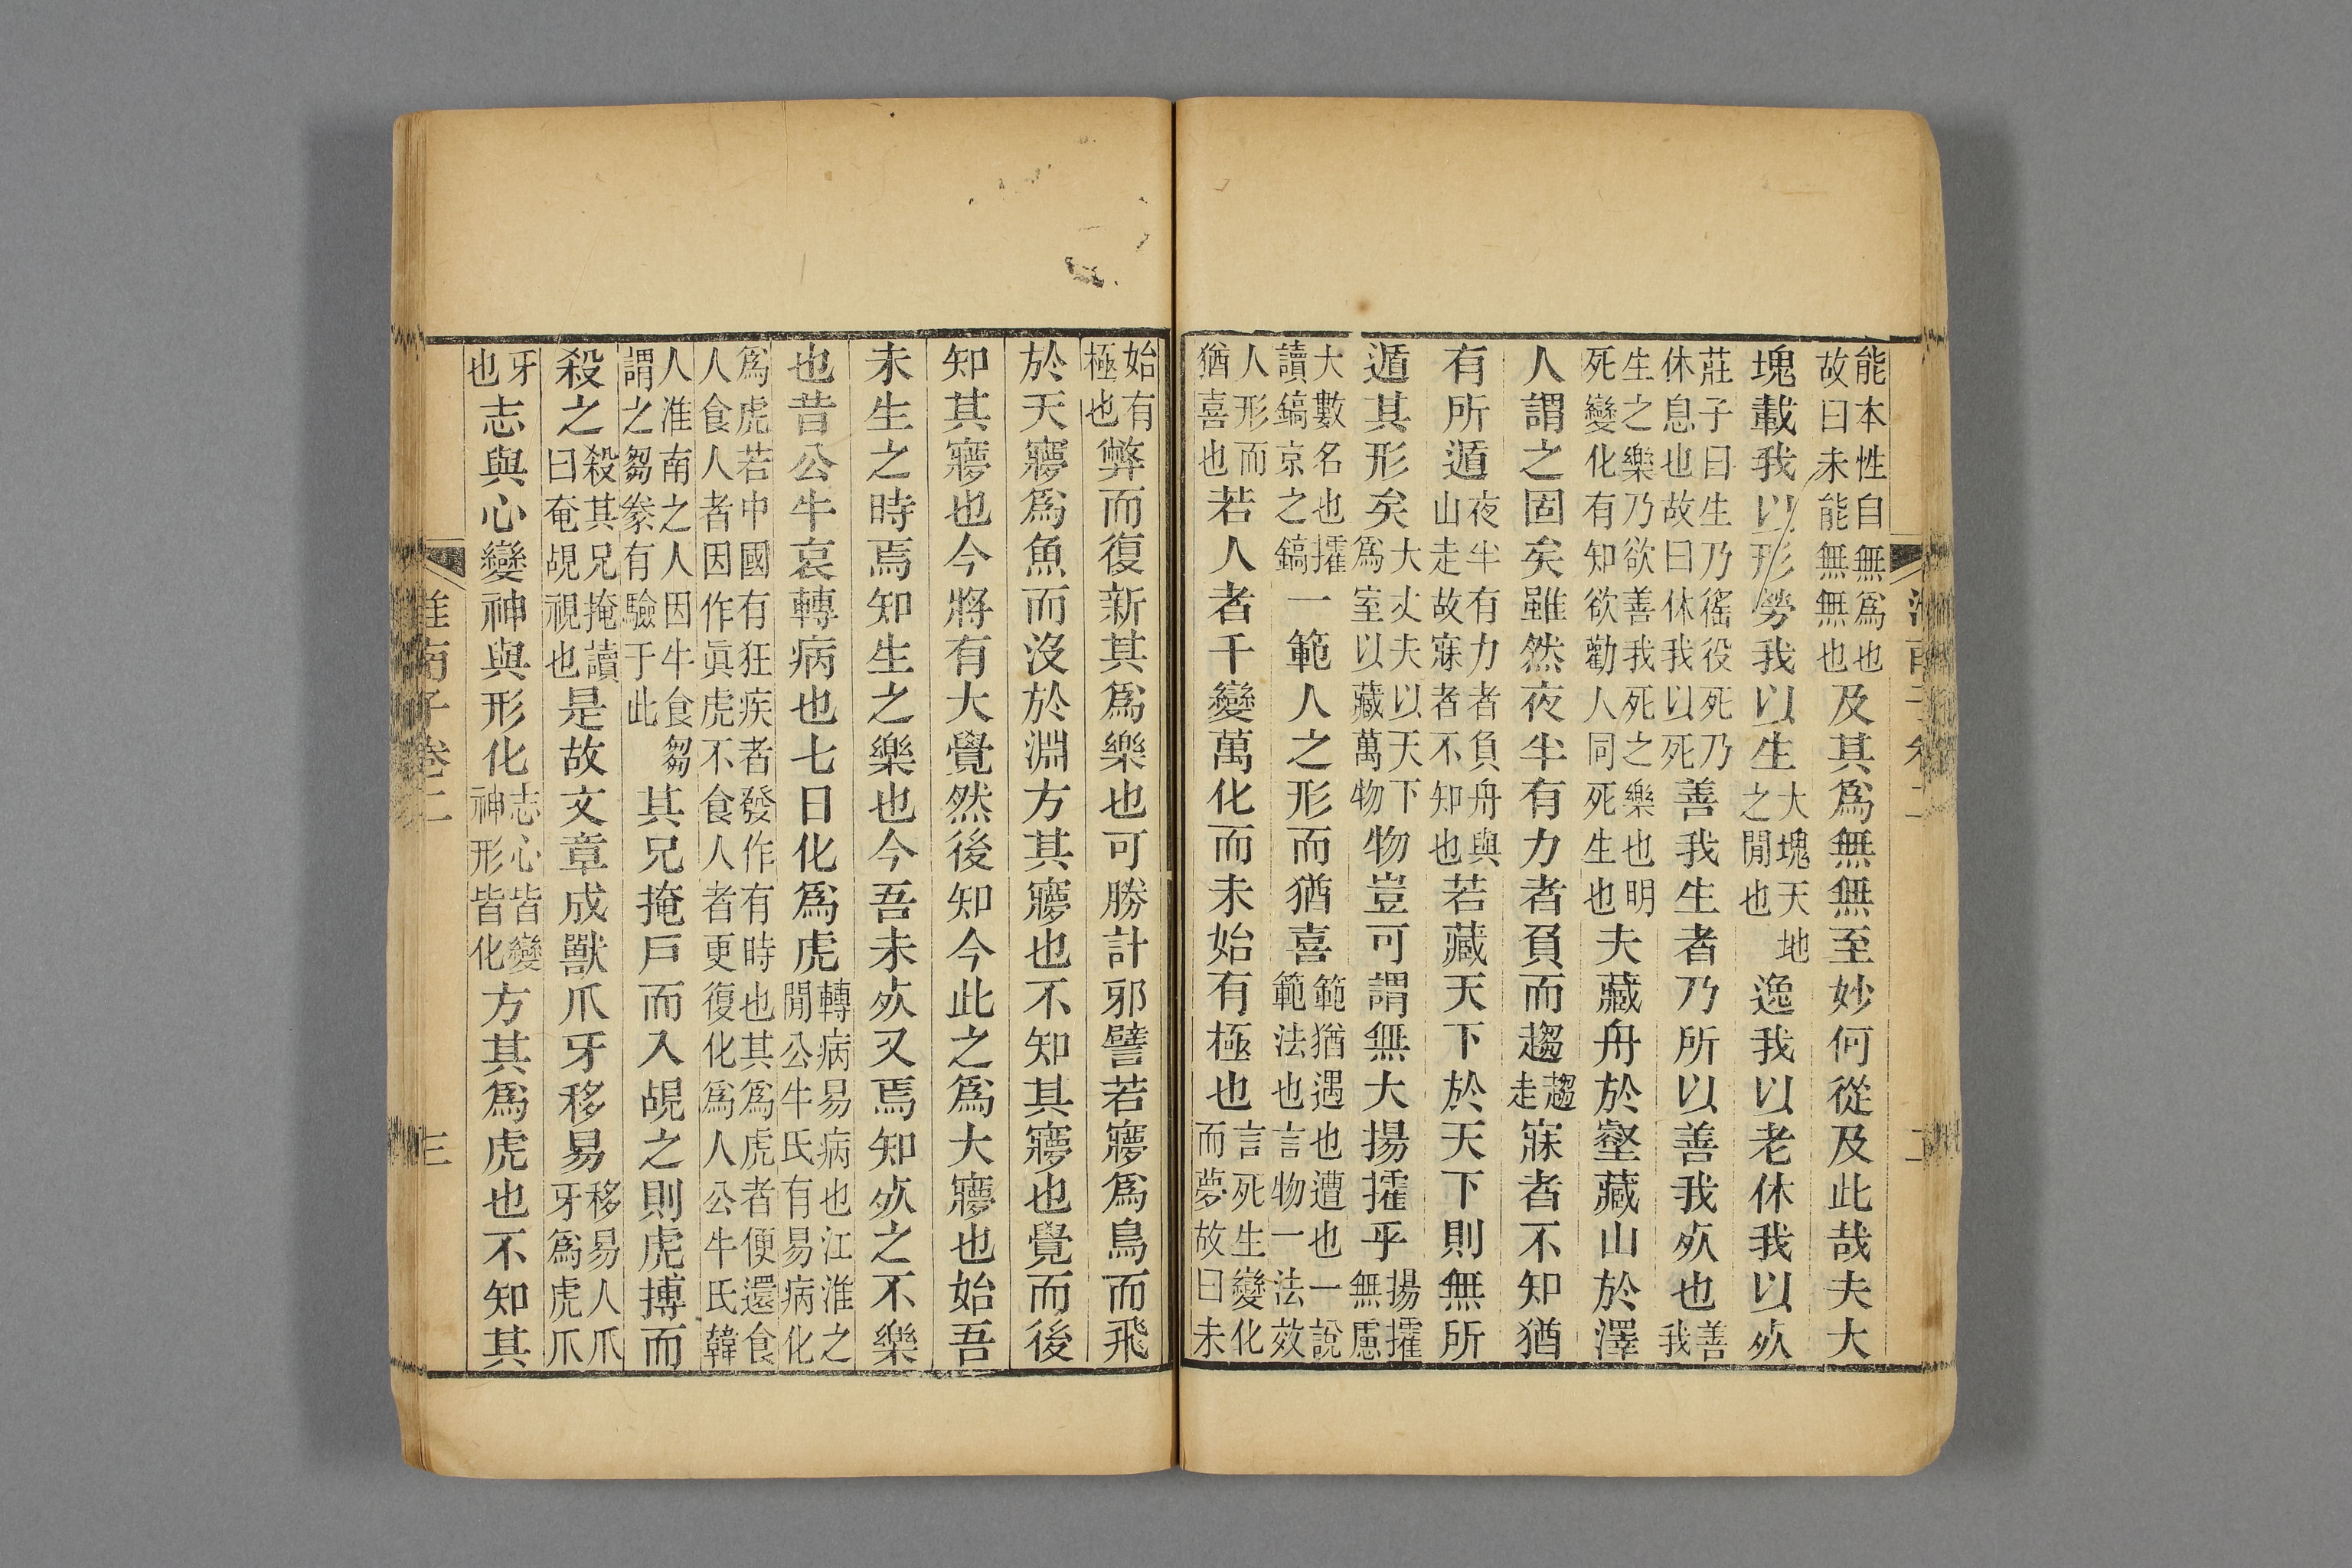 能本性自無爲也故曰未能無無也及其爲無無至妙何從及此哉夫大
塊載我以形勞我以生大塊天地之閒也逸我以老休我以死
莊子曰生乃徭役死乃休息也故曰休我以死善我生者乃所以善我死也善我
生之樂乃欲善我死之樂也明死變化有知欲勸人同死生也夫藏舟於壑藏山於澤
人謂之固矣雖然夜半有力者負而趨趨走寐者不知猶
有所遁夜半有力者負舟與山走故寐者不知也若藏天下於天下則無所
遁其形矣大丈夫以天下爲室以藏萬物物豈可謂無大揚攉乎揚攉無慮
大數名也攉讀鎬京之鎬一範人之形而猶喜範猶遇也遭也一說範法也言物一法效
人形而猶喜也若人者千變萬化而未始有極也言死生變化而夢故曰未
始有極也弊而復新其爲樂也可勝計邪譬若㝱爲鳥而飛
於天㝱爲魚而沒於淵方其㝱也不知其㝱也覺而後
知其㝱也今將有大覺然後知今此之爲大㝱也始吾
未生之時焉知生之樂也今吾未死又焉知死之不樂
也昔公牛哀轉病也七日化爲虎轉病易病也江淮之閒公牛氏有易病化
爲虎若中國有狂疾者發作有時也其爲虎者便還食人食人者因作眞虎不食人者更復化爲人公牛氏韓
人淮南之人因牛食芻謂之芻豢有驗于此其兄掩戶而入覘之則虎搏而
殺之殺其兄掩讀曰奄覘視也是故文章成獸爪牙移易移易人爪牙爲虎爪
牙也志與心變神與形化志心皆變神形皆化方其爲虎也不知其
淮南子卷二
三